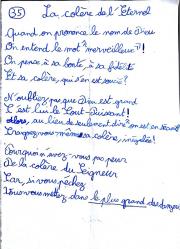 35 La colère de l'Eternel
Quand on prononce le nom de Dieu
On entend le mot "merveilleux"!
On pense à sa bonté, à sa
Et sa colère, qui s'en soucie?
N'oubliez pas que Dieu est grand
C'est lui le Tout-Puissant!
Alors, au lieu de seulement dire on est en sécurité
Craignez vous même sa colère, incrédule!
Pourquoi n'avez-vous pas peur
De la colère du Seigneur
Car, si vous péchez
Vous vous mettez dans le plus grand des dangers